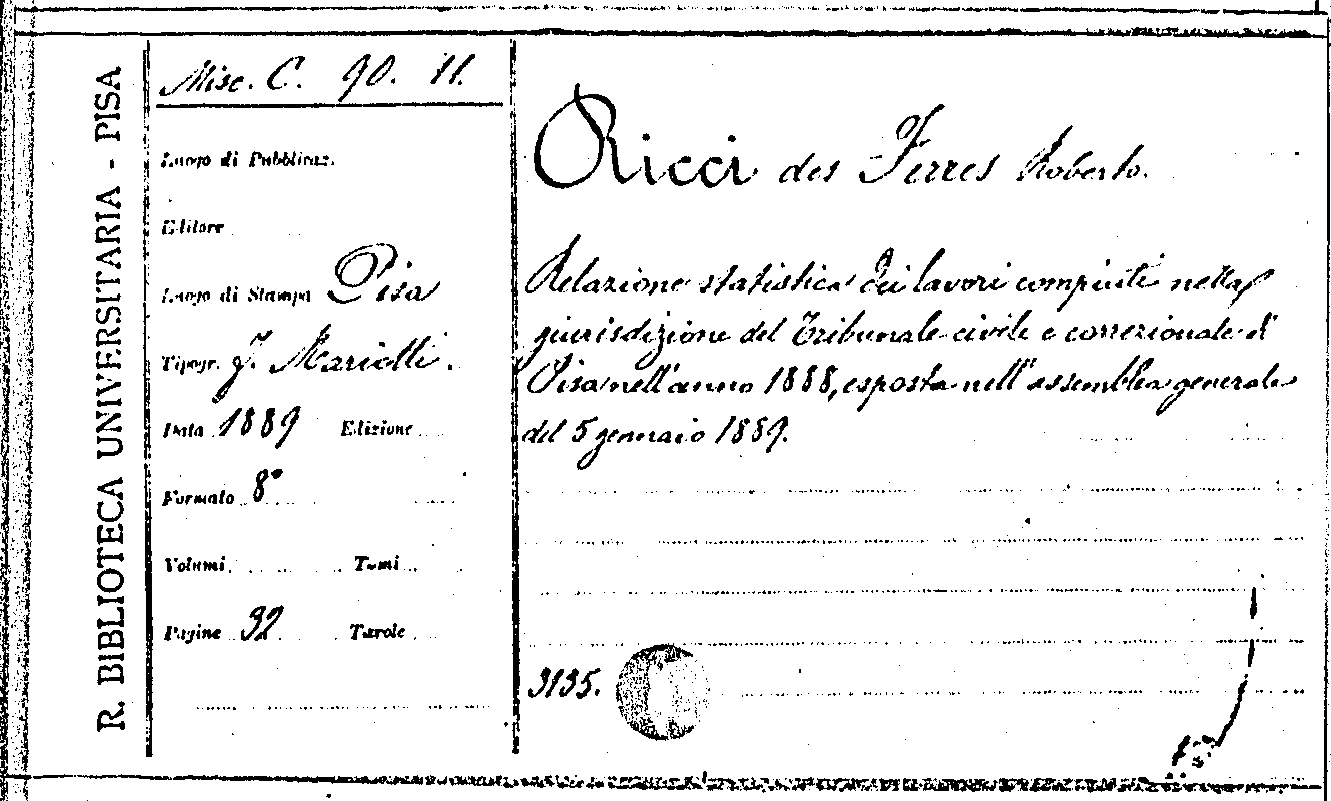 R. BIBLIOTECA UNIVERSITARIA - PISA
Misc. C. 90. 11.
Luogo di Pubblicaz.
Editore
Luogo di Stampa Pisa
Tipogr. J. Mariotti.
Data 1889 Edizione
Formato 8°
Volumi Tomi
Pagine 32 Tavole
Ricci des Ferres Roberto.
Relazione statistica dei lavori compiuti nella
giurisdizione del Tribunale civile e correzionale di
Pisa nell'anno 1888, esposta nell'assemblea generale
del 5 gennaio 1889.
3135.